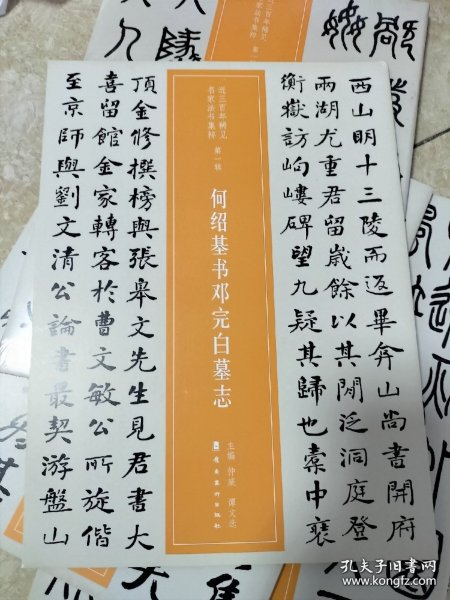 近三百年稀见
名家法书集粹
西山明十三陵而返畢弇山尚書開府
兩湖尤重君留歲餘以其閒泛洞庭登
衡嶽訪岣嶁碑望九疑其歸也橐中裝
近三百年稀见
名家法书集粹 第一辑
何绍基书邓完白墓志
主编 仲威 谭文选
岭南美术出版社
頂金修撰榜與張皋文先生見君書大
喜留館金家轉客於曹文敏公所旋偕
至京師與劉文清公論書最契游盤山
孔夫子旧书网
www.kongfz.com